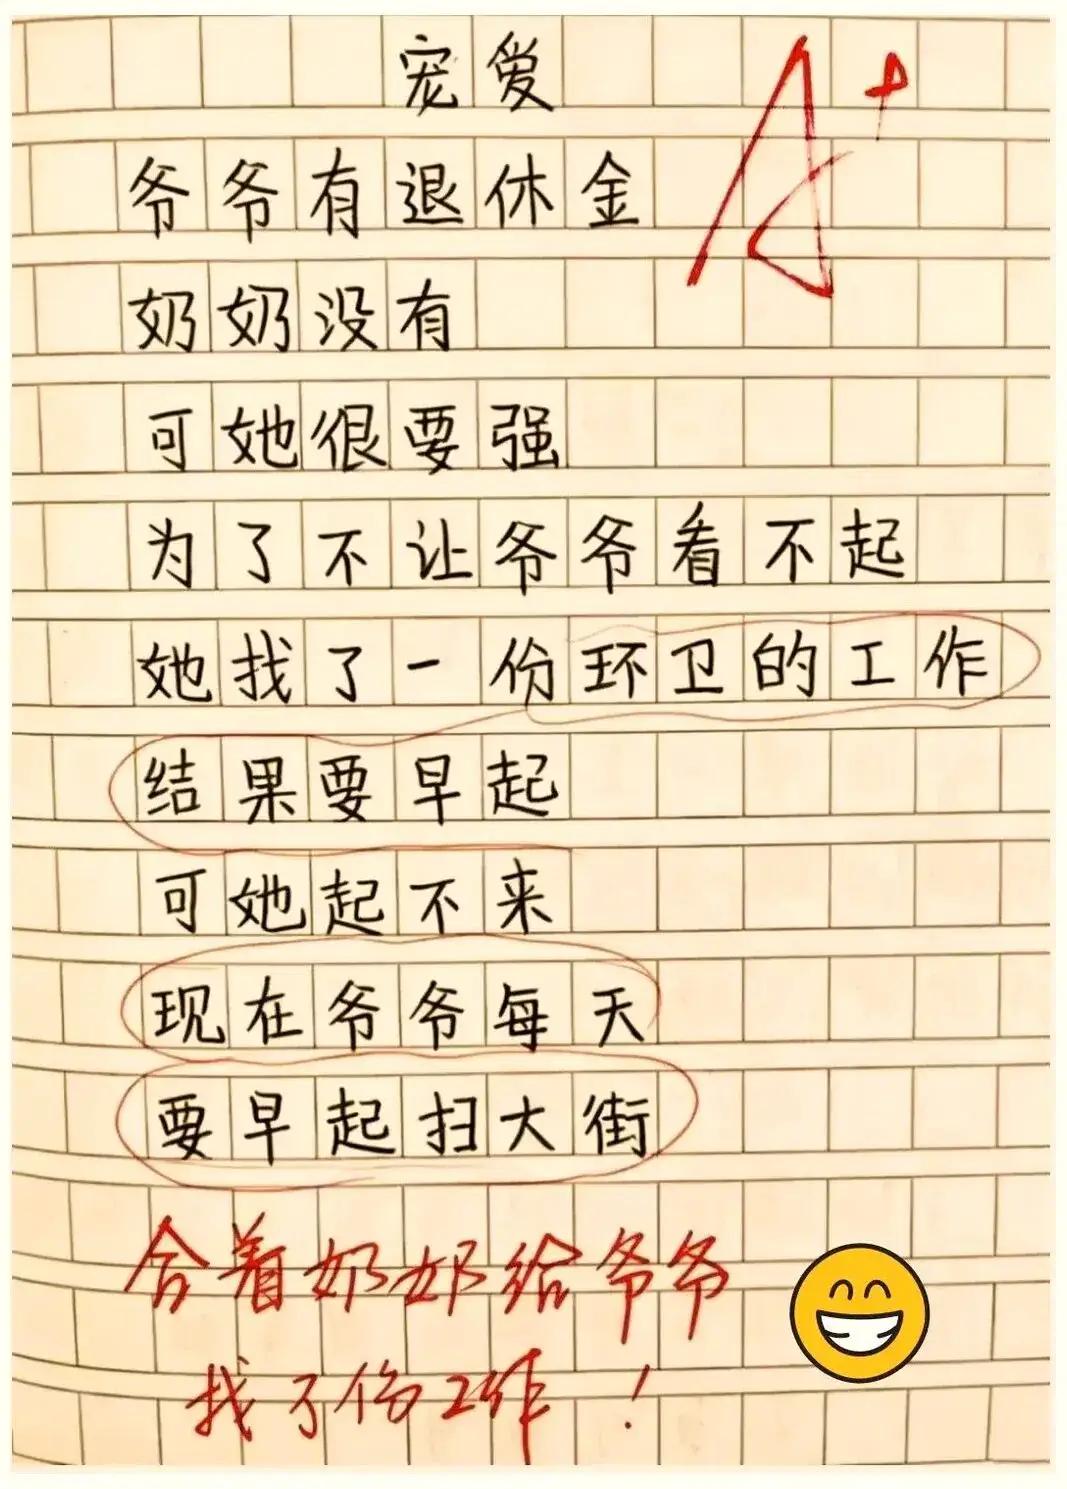 宠爱
A+
爷爷有退休金
奶奶没有
可她很要强
为了不让爷爷看不起
她找了一份环卫的工作
结果要早起
可她起不来
现在爷爷每天
要早起扫大街
合着奶奶给爷爷
找了份工作!